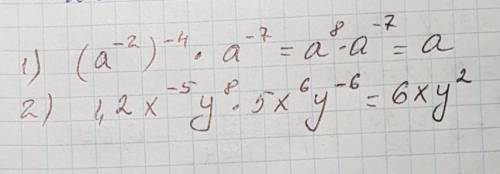 1) (a⁻²)⁻⁴ · a⁻⁷ = a⁸ · a⁻⁷ = a
2) 1,2x⁻⁵y⁸ · 5x⁶y⁻⁶ = 6xy²